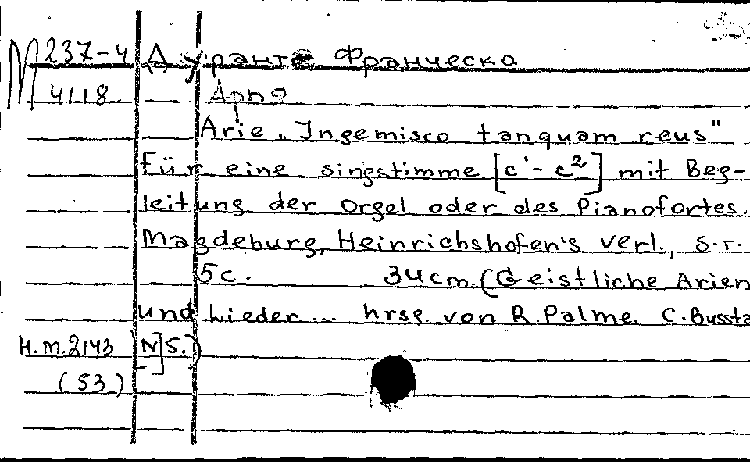 М 237-4 Дуранте Франческо
4118 Ария
Arie „Ingemisco tanquam reus"
für eine singstimme [c¹-e²] mit Beg-
leitung der Orgel oder des Pianofortes.
Magdeburg, Heinrichshofen's Verl., s.r.
5c. 34cm (Geistliche Arien
und Lieder... hrsg. von R.Palme. C.Bussta
Н.М.2143 N 5.)
(53)